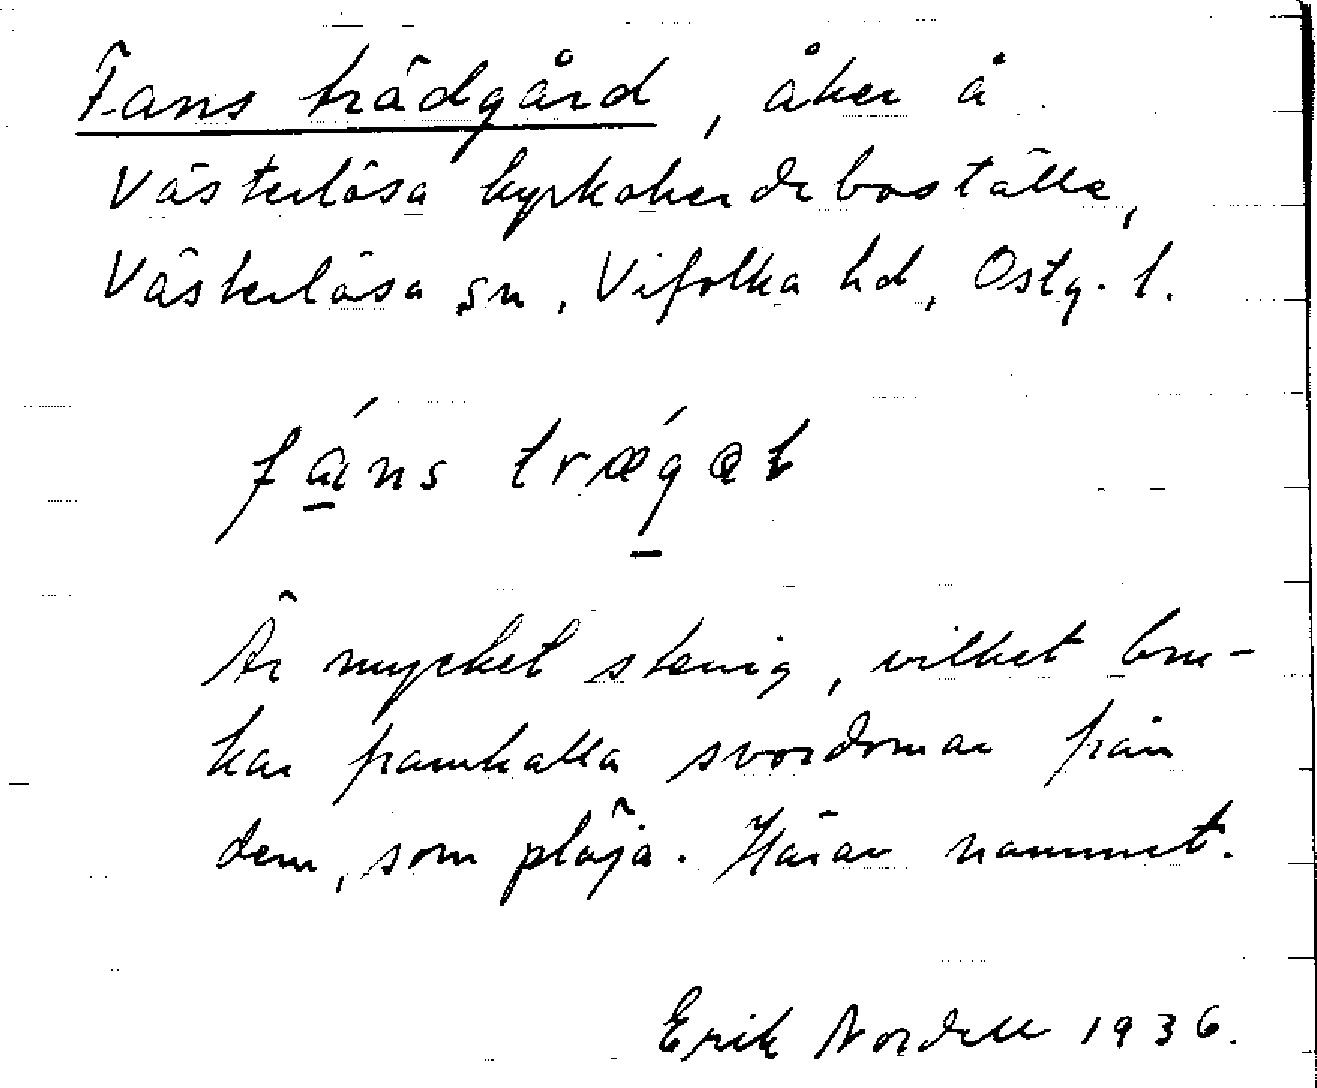 Fans trädgård, åker å
Västerlösa kyrkoherdeboställe,
Västerlösa sn, Vifolka hd, Östg. l.
fáns trǽgat
Är mycket stenig, vilket bru-
kar framkalla svordomar från
dem, som plöja. Härav namnet.
Erik Nordell 1936.